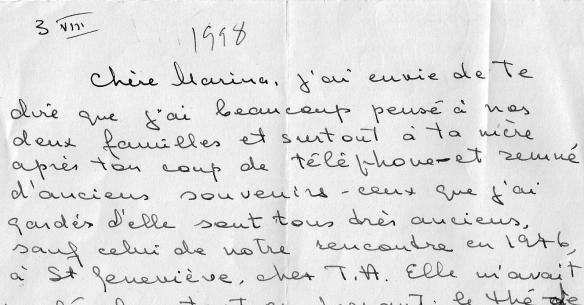 3 VIII 1998
Chère Marina, j'ai envie de Te
dire que j'ai beaucoup pensé à nos
deux familles et surtout à ta mère
après ton coup de téléphone - et remué
d'anciens souvenirs - ceux que j'ai
gardés d'elle sont tous très anciens,
sauf celui de notre rencontre en 1946,
à St Geneviève, chez T.A. Elle m'avait
le thé de